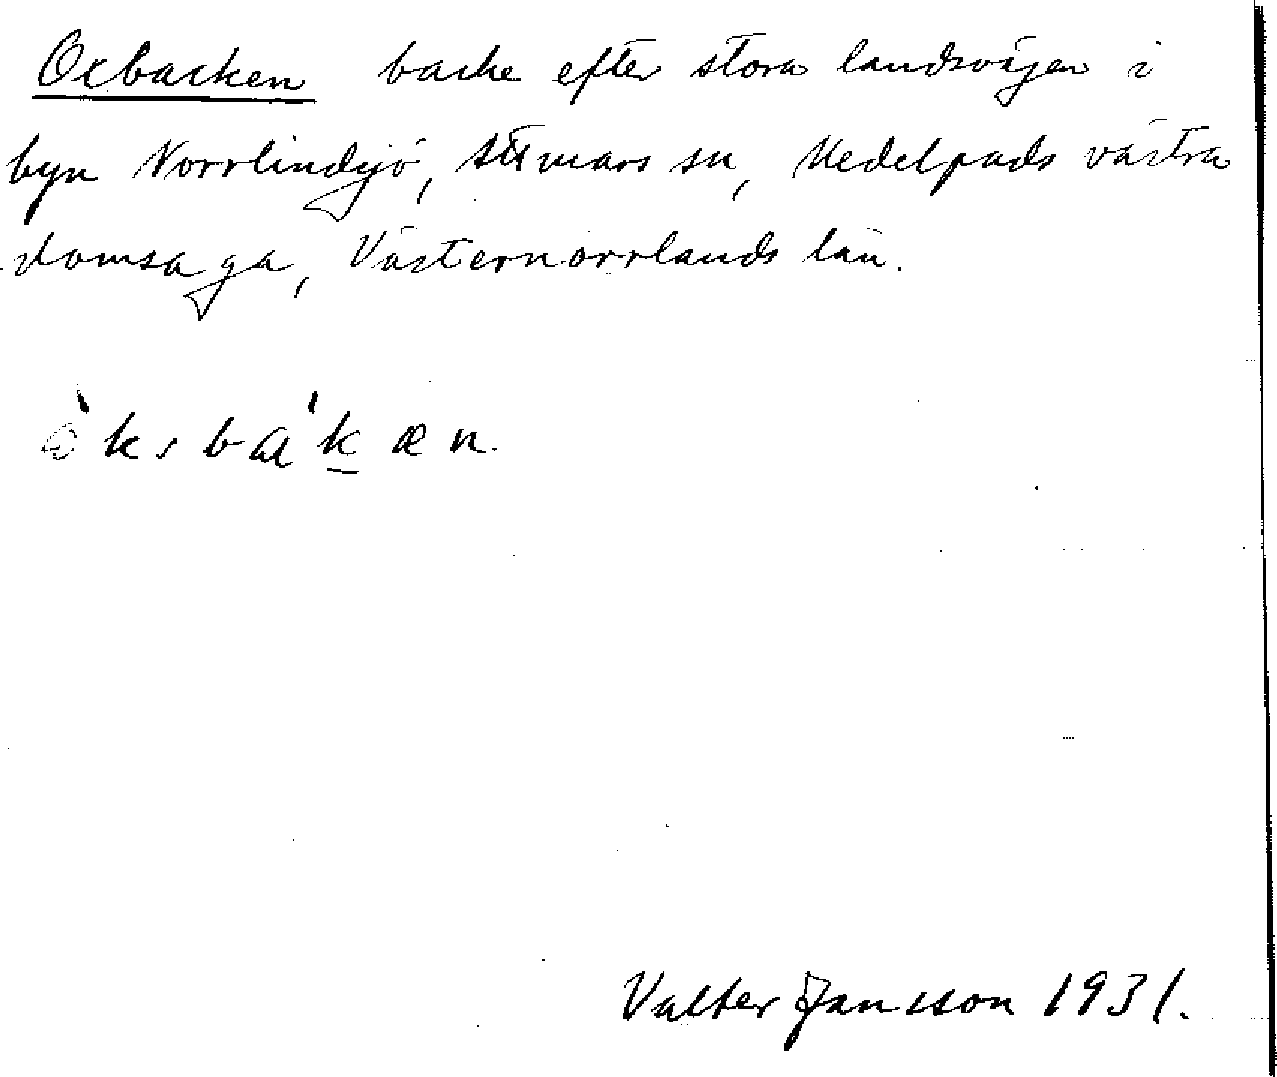 Oxbacken backe efter stora landsvägen i
byn Norrlindsjö, Attmars sn, Medelpads västra
domsaga, Västernorrlands län.
ò̀ksba'k̲æn.
Valter Jansson 1931.